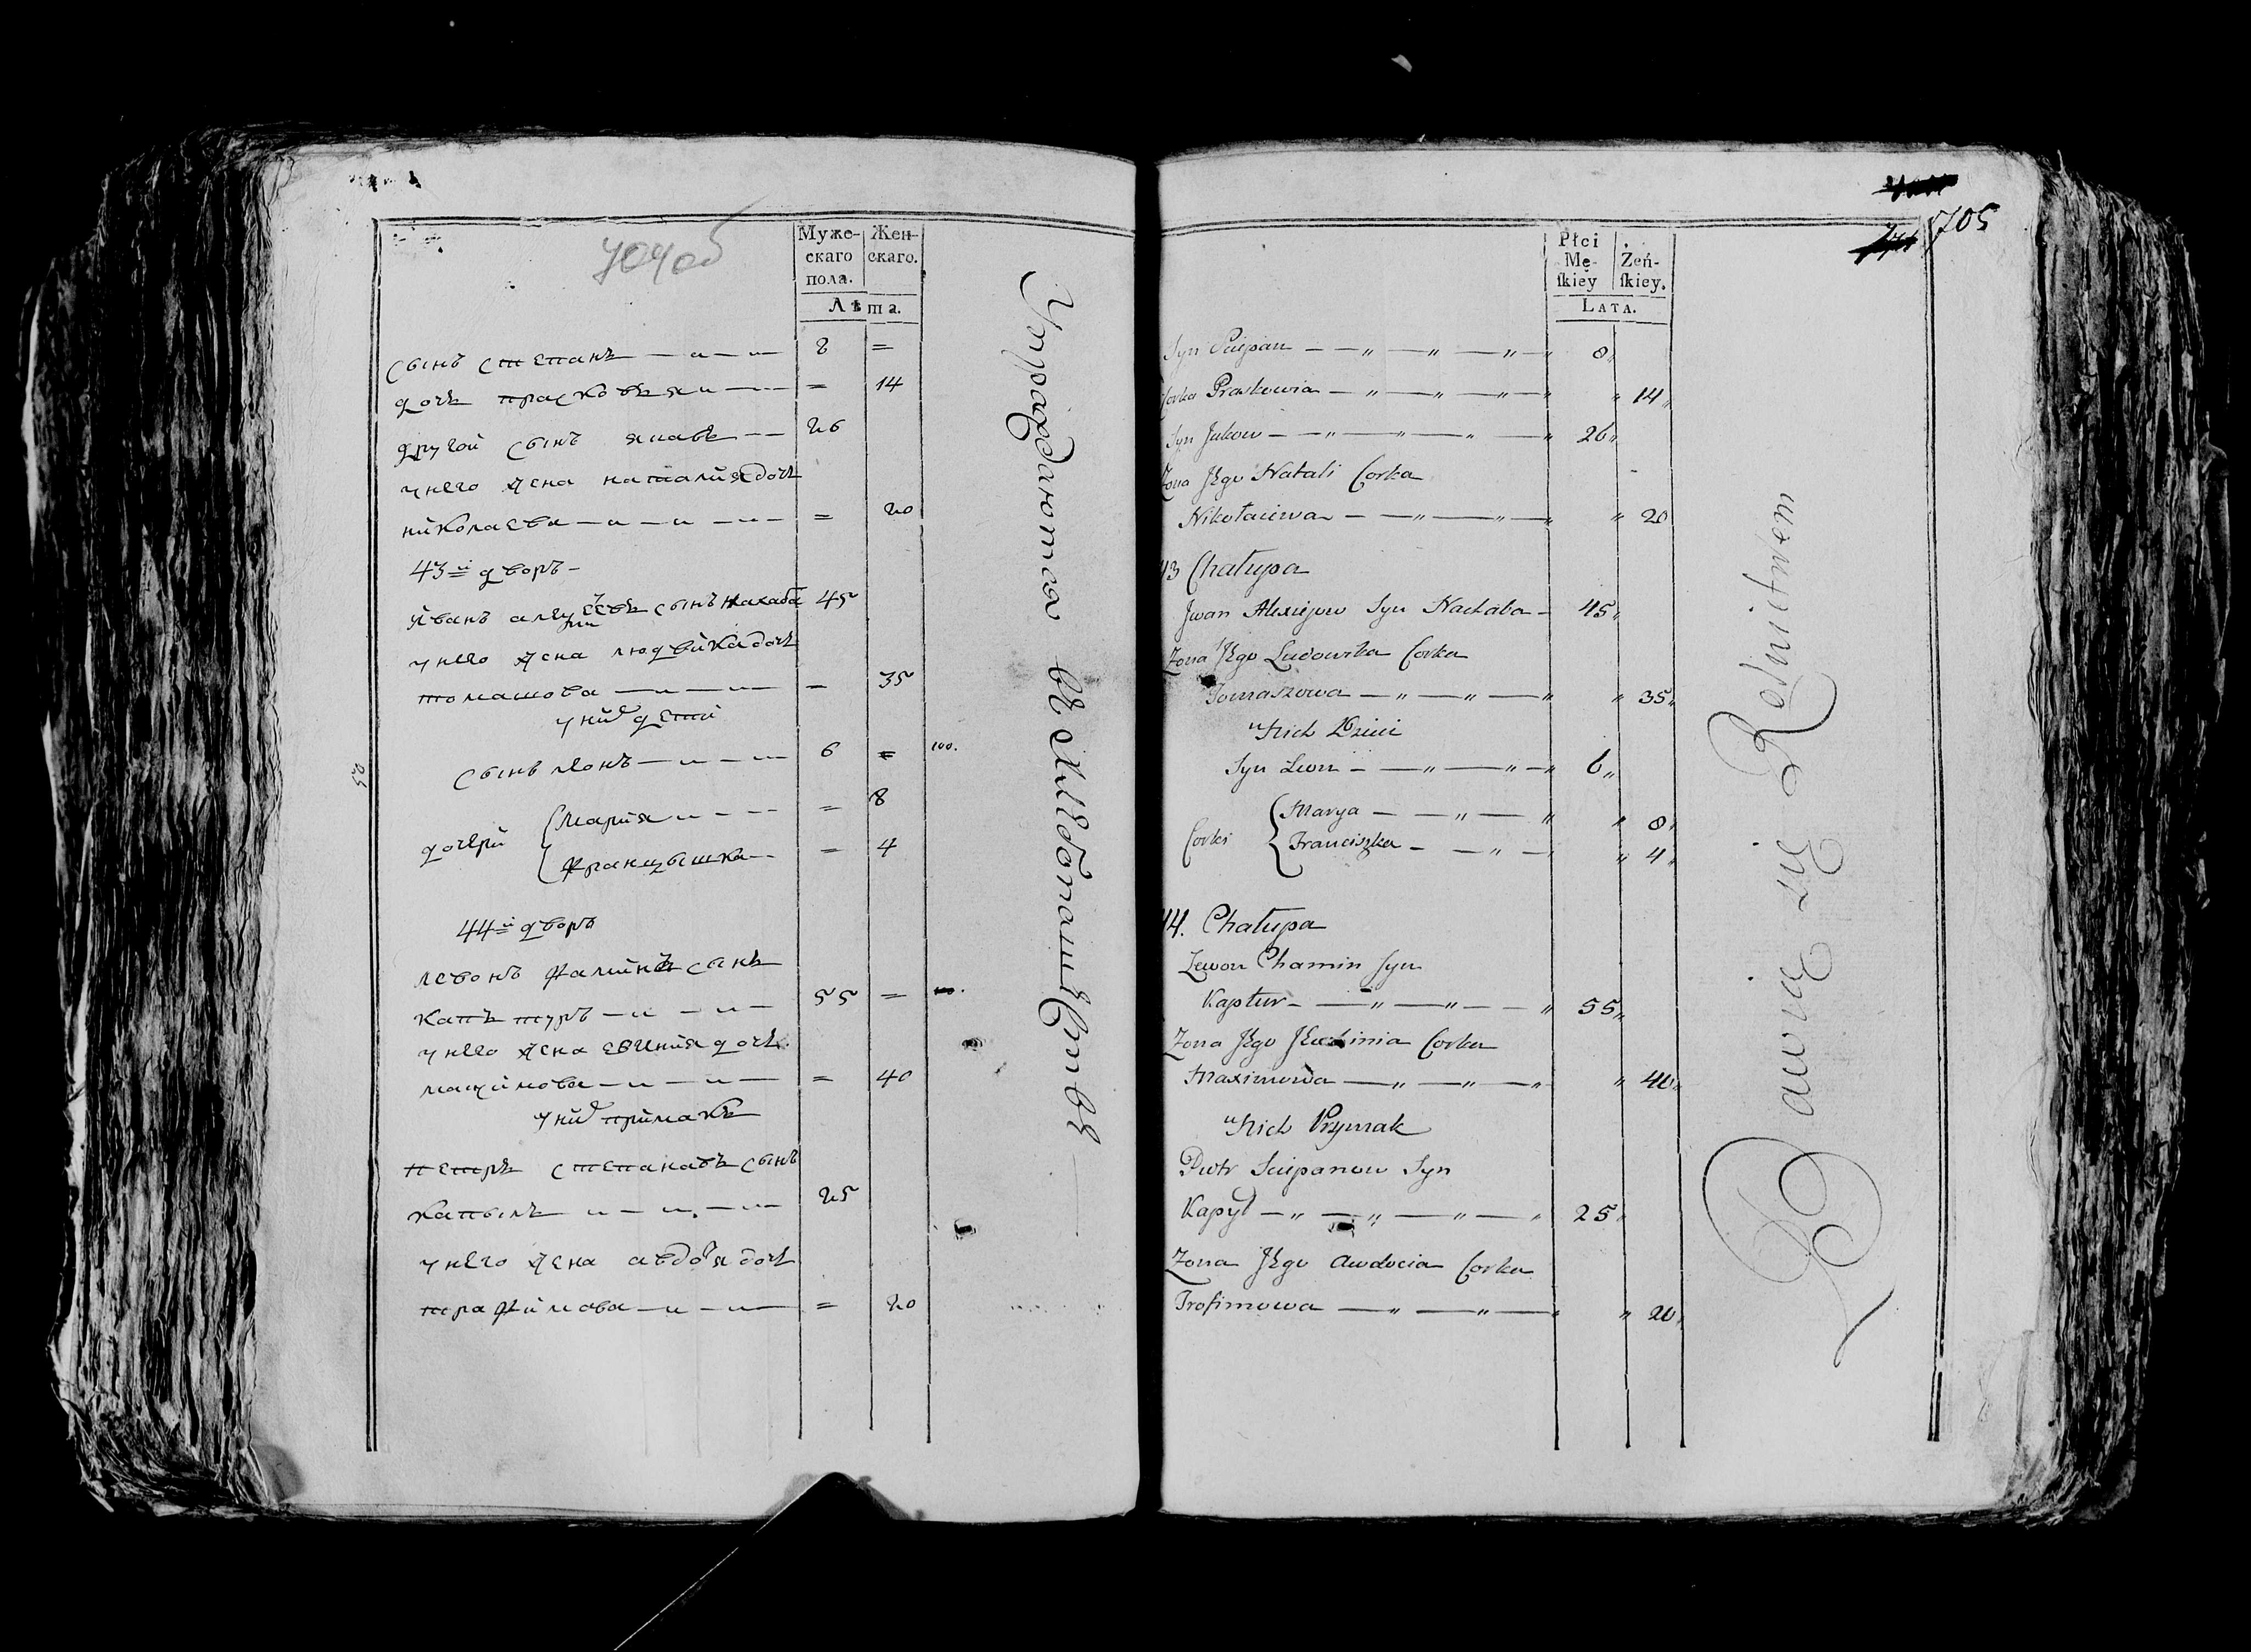 704об
Муже-
скаго
пола.
Жен-
скаго.
Лѣта.
сынъ степанъ — 8 =
дочь прасковья — = 14
другой сынъ якавъ — 26
у него жена наталия дочь
николаева — = 20
43й дворъ -
иванъ алексеевъ сынъ нахаба 45
у него жена людвика дочь
томашова — = 35
у них дети
сынъ леонъ — 6 = 100.
дочери
мария — = 8
францышка — = 4
44й дворъ
левонъ фаминъ сынъ
капътуръ — 55 =
у него жена евгения дочь
мащимова — = 40
у них примакъ
петръ степанавъ сынъ
капылъ — 25
у него жена авдотя дочь
трафимова — = 20
25
Упраждаются въ хлебопашествѣ
705
Płci
Mę-
ſkiey
Żeń-
ſkiey.
LATA.
Syn Sciepan — 8
Corka Praskowia — " 14
Syn Jakow — 26
Zona Jego Natali Corka
Nikołaiewa — " 20
43 Chałupa
Jwan Alexiejow Syn Nachaba — 45
Zona Jego Ludowika Corka
Tomaszowa — " 35
u Nich Dzieci
Syn Lewon — 6
Corki
Marya — " 8
Franciszka — " 4
44. Chałupa
Lewon Chamin Syn
Kaptur — 55
Zona Jego Jewdinia Corka
Maximowa — " 40
u Nich Prymak
Piotr Sciepanow Syn
Kapył — 25
Zona Jego Awdocia Corka
Trofimowa — " 20
Bawią się Rolnictwem